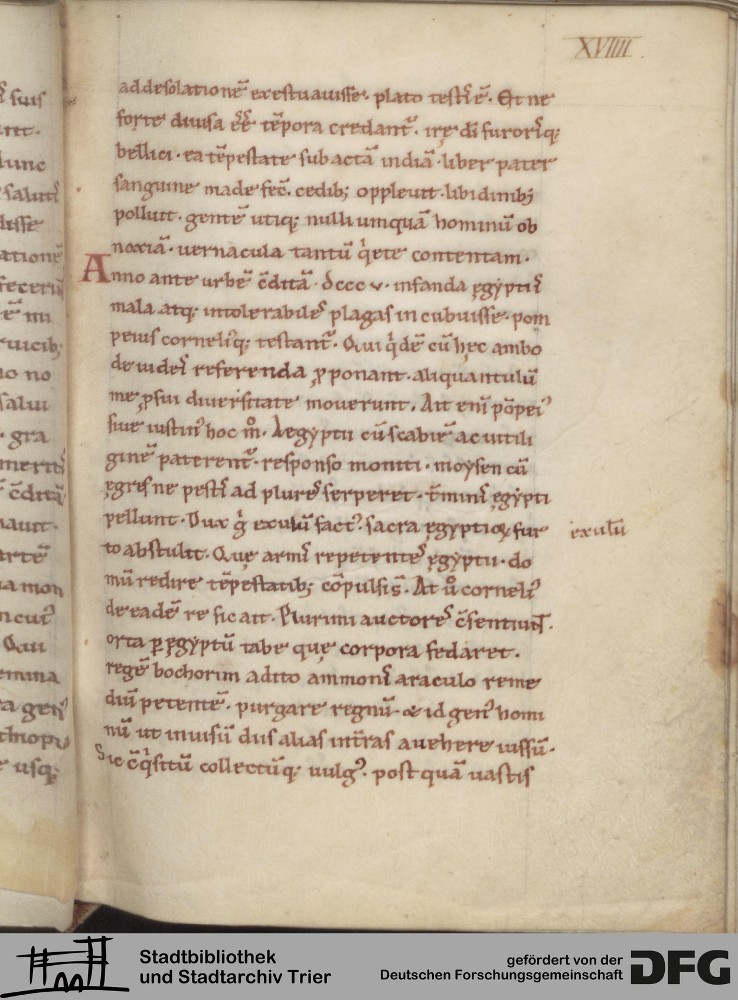 XVIIII.
ad desolationē exestuauisse. plato testis ē. Et ne
forte diuisa eē tēpora credant̄. irę dī furorisq;
bellici. ea tēpestate subactā indiā. liber pater
sanguine madefec̄. cedib; oppleuit. libidinib;
polluit. gentē utiq; nulli umquā hominū ob
noxiā. uernacula tantū q̇ete contentam.
Anno ante urbē c̄ditā. dccc v. infanda ęgyptiis
mala atq; intolerabiles plagas incubuisse. pom
peius corneliꝰq; testant̄. Qui q̇dē cū hęc ambo
de iudeis referenda ꝓponant. aliquantulū
me ꝓ sui diuersitate mouerunt. Ait enī pōpeiꝰ
siue iustinꝰ hoc m̊. Aegyptii cū scabiē ac uitili
ginē paterent̄. responso moniti. moysen cū
ęgris ne pestis ad plures serperet. t̄minis ęgypti
pellunt. Dux g̊ exulū factꝰ. sacra ęgyptioꝝ fur
to abstulit. Quę armis repetentes ęgyptii. do
mū redire tēpestatib; cōpulsi s̄. At ů corneliꝰ
de eadē re sic ait. Plurimi auctores c̄sentiunt.
orta ꝑ ęgyptū tabe quę corpora fedaret.
regē bochorim adito ammonis araculo reme
diū petentē. purgare regnū. & id genꝰ homi
nū ut inuisū diis alias in t̄ras auehere iussū.
Sic c̄q̇sitū collectūq; uulgꝰ. postquā uastis
exulū
Stadtbibliothek
und Stadtarchiv Trier
gefördert von der
Deutschen Forschungsgemeinschaft
DFG